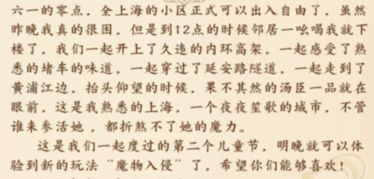 六一的零点，全上海的小区正式可以出入自由了，虽然
昨晚我真的很困，但是到12点的时候邻居一吆喝我就下
楼了，我们一起开上了久违的内环高架，一起感受了熟
悉的堵车的味道，一起穿过了延安路隧道，一起走到了
黄浦江边，抬头仰望的时候，果不其然的汤臣一品就在
眼前，这是我熟悉的上海，一个夜夜笙歌的城市，不管
谁来参活她，都折煞不了她的魔力。
这是我们一起度过的第二个儿童节，明晚就可以体
验到新的玩法“魔物入侵”了，希望你们能够喜欢！